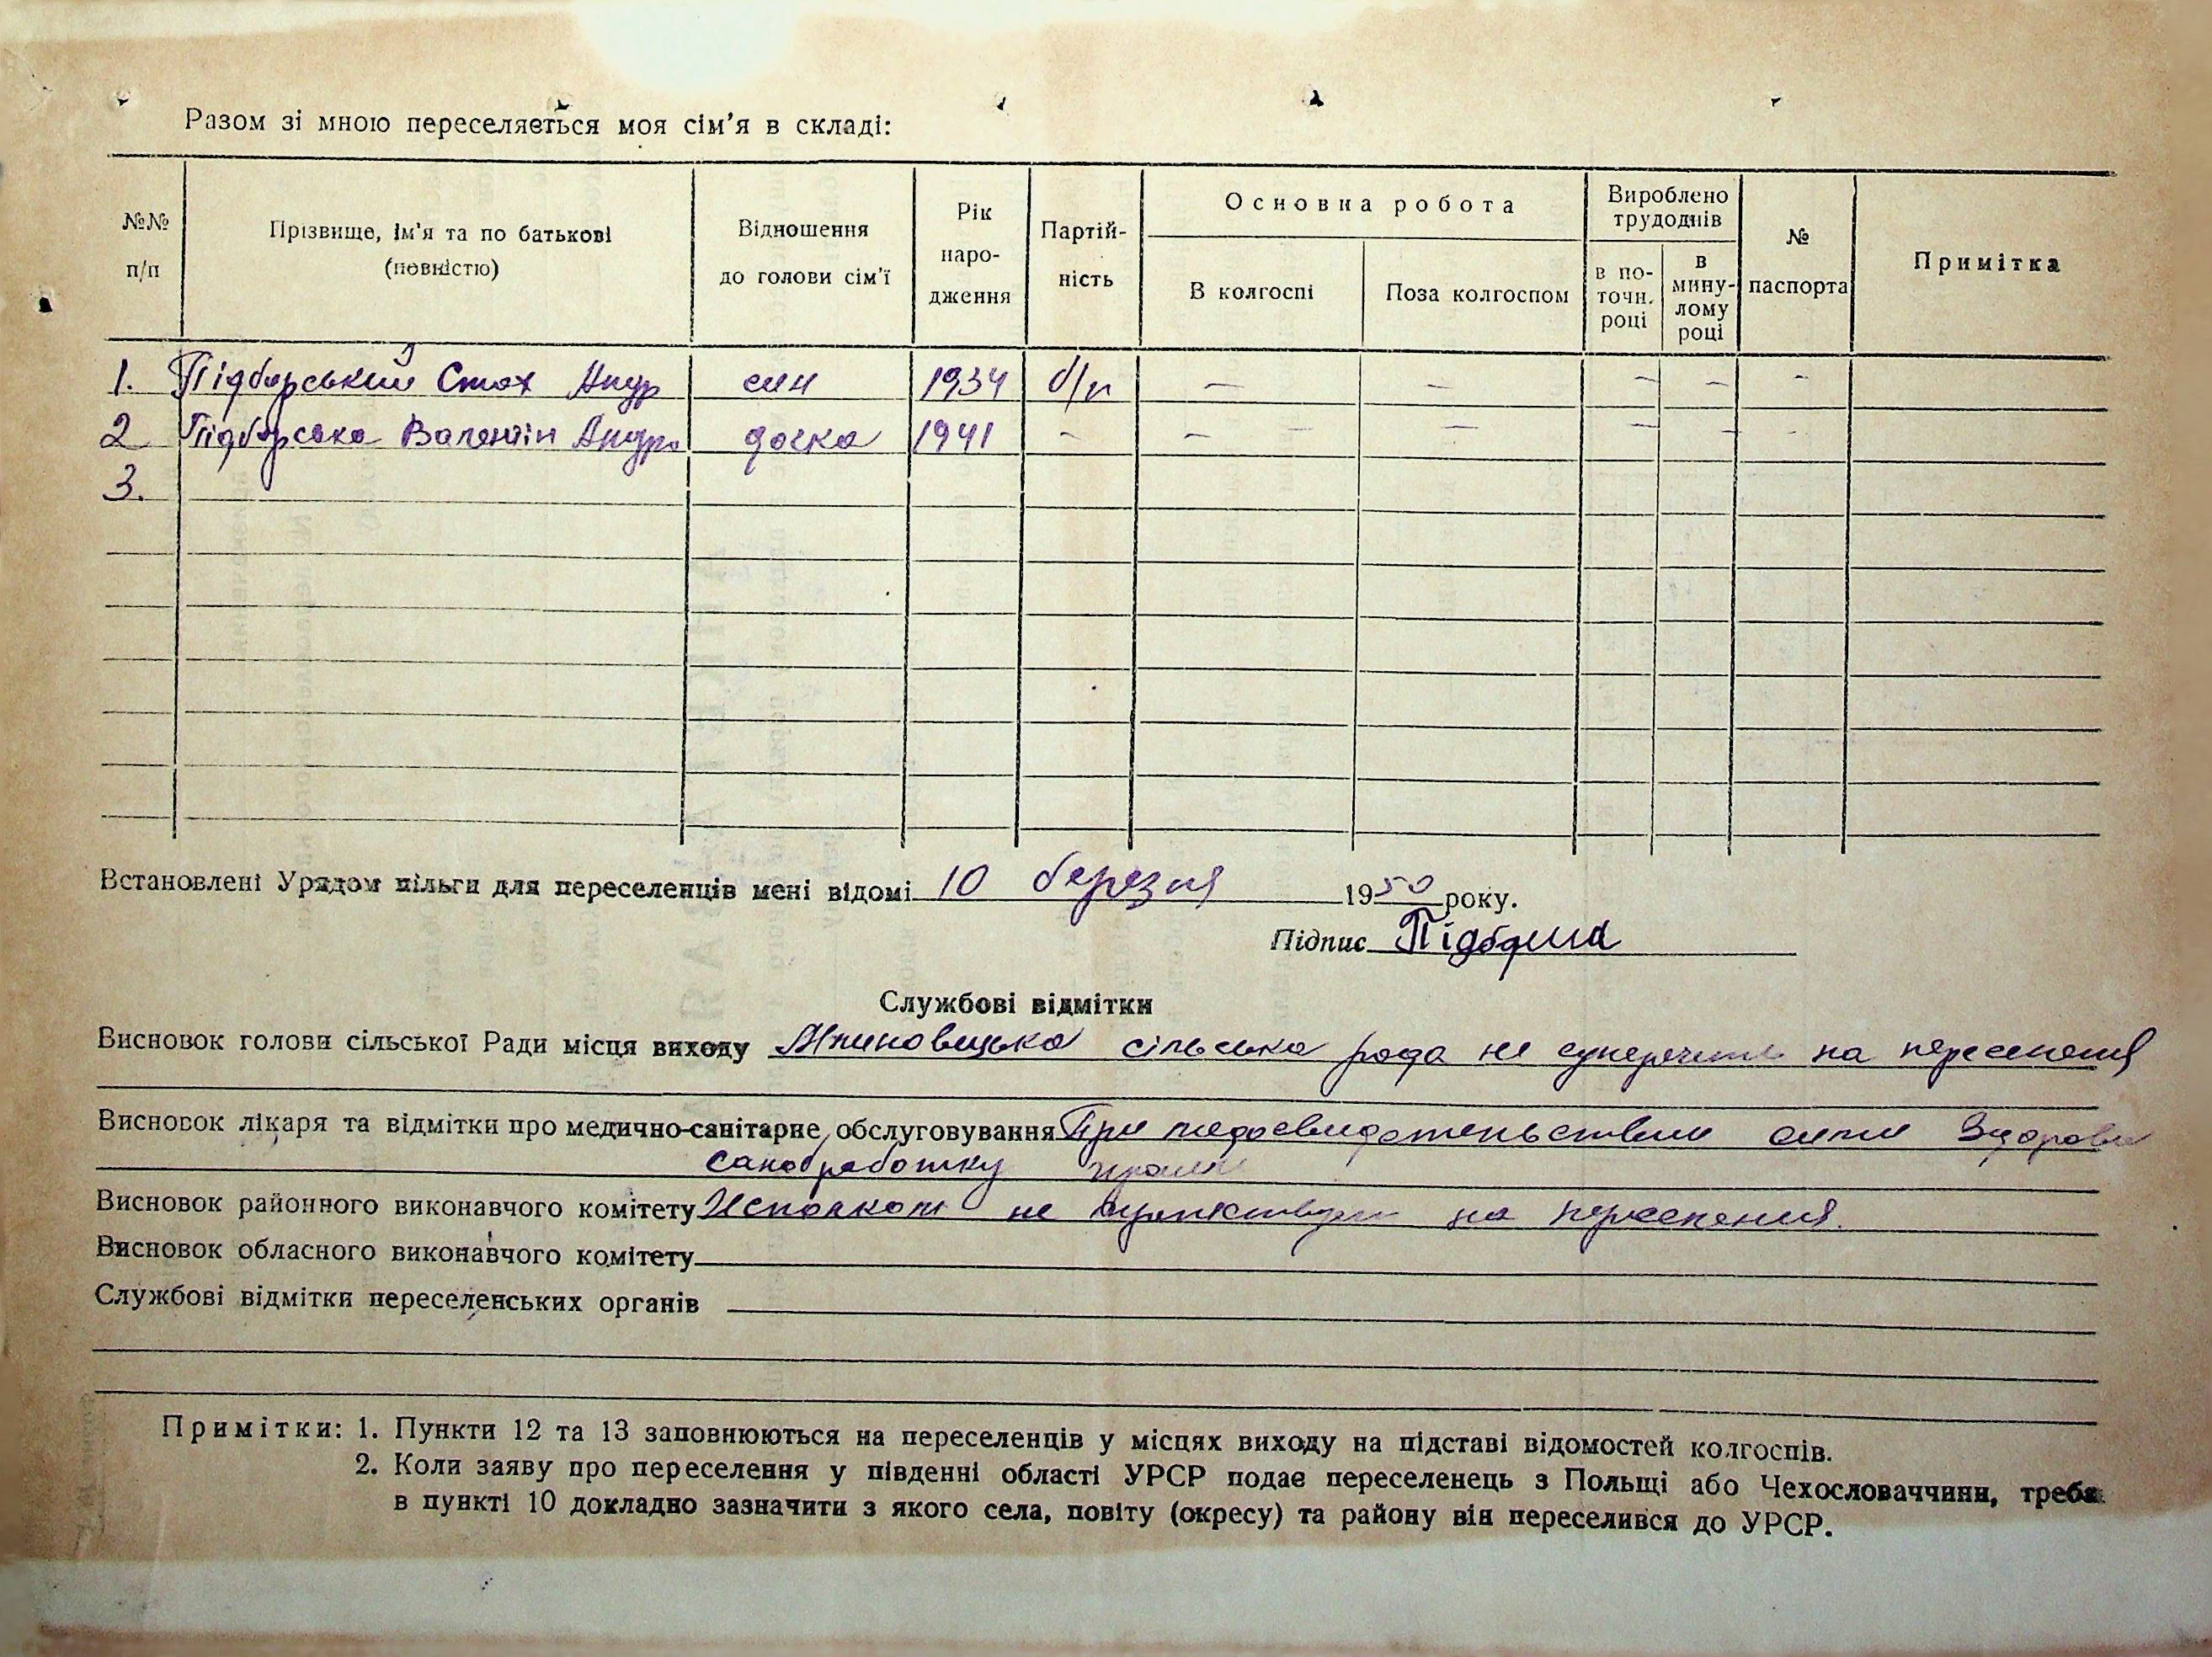 Разом зі мною переселяється моя сім'я в складі:
№№ п/п
Прізвище, ім'я та по батькові (повністю)
Відношення до голови сім'ї
Рік народження
Партійність
Основна робота
В колгоспі
Поза колгоспом
Вироблено трудоднів
в поточн. році
в минулому році
№ паспорта
Примітка
1. Підборський Стах Андр син 1934 б/п — — — — -
2 Підборська Валентін Андр дочка 1941 - - - — — - -
3.
Встановлені Урядом пільги для переселенців мені відомі 10 березня 1950 року.
Підпис
Службові відмітки
Висновок голови сільської Ради місця виходу сільська рада не суперечить на переселення
Висновок лікаря та відмітки про медично-санітарне обслуговування При здорови
санобработку
Висновок районного виконавчого комітету Исполком не на переселения.
Висновок обласного виконавчого комітету
Службові відмітки переселенських органів
Примітки: 1. Пункти 12 та 13 заповнюються на переселенців у місцях виходу на підставі відомостей колгоспів.
2. Коли заяву про переселення у південні області УРСР подає переселенець з Польщі або Чехословаччини, треба
в пункті 10 докладно зазначити з якого села, повіту (окресу) та району він переселився до УРСР.